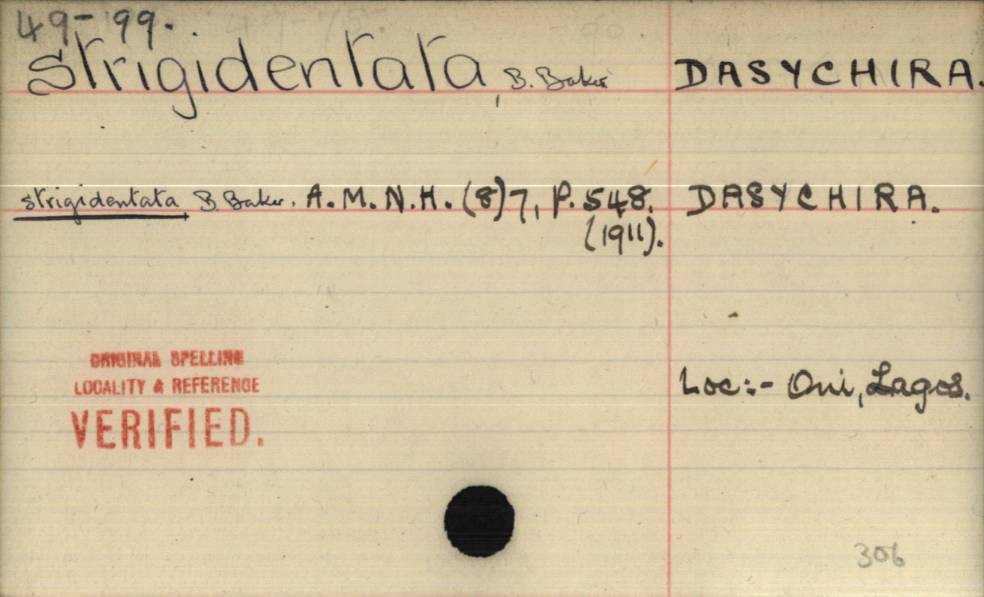 49-99.
strigidentata, B. Baker DASYCHIRA.
strigidentata B. Baker. A.M.N.H. (8)7, P.548. DASYCHIRA.
(1911).
ORIGINAL SPELLING
LOCALITY & REFERENCE
VERIFIED.
Loc:- Oni, Lagos.
306